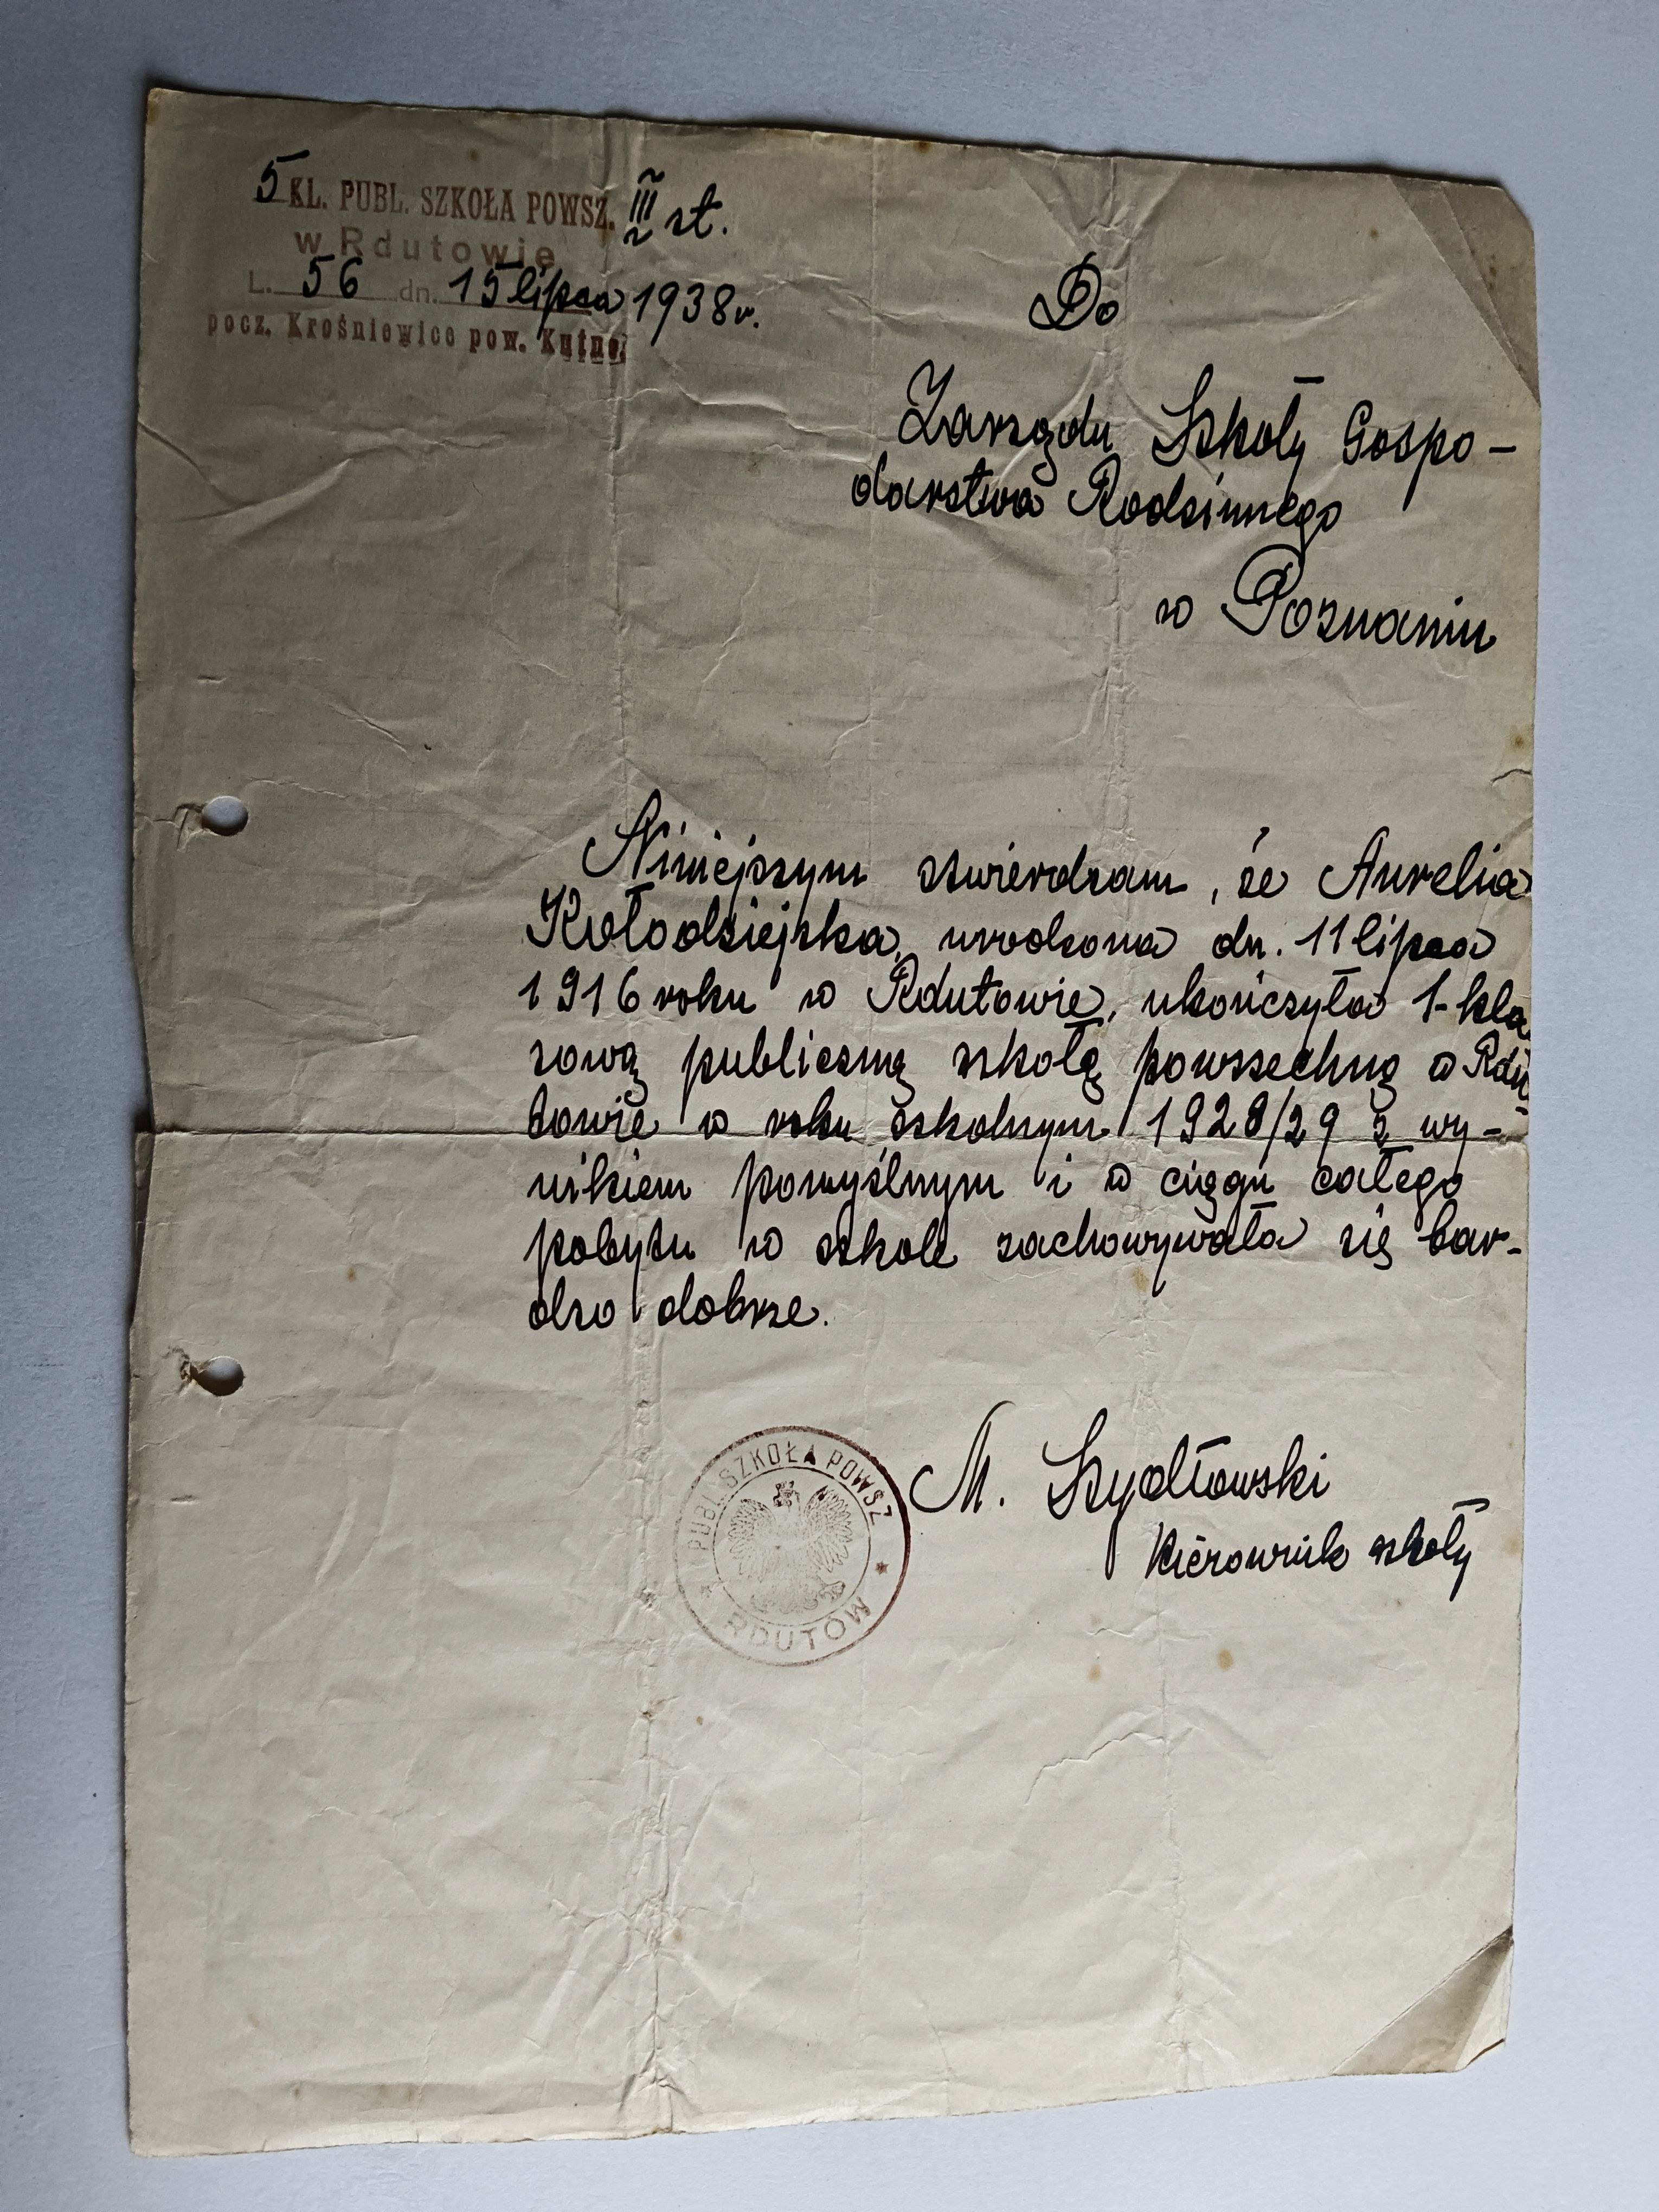 5 KL. PUBL. SZKOŁA POWSZ. III st.
w Rdutowie
L. 56 dn. 15 lipca 1938 r.
pocz. Krośniewice pow. Kutno
Do
Zarządu Szkoły Gospo-
darstwa Rodzinnego
w Poznaniu
Niniejszym stwierdzam, że Aurelia
Kołodziejska, urodzona dn. 11 lipca
1916 roku w Rdutowie, ukończyła 1-kla
sową publiczną szkołę powszechną w Rdu-
towie w roku szkolnym 1928/29 z wy-
nikiem pomyślnym i w ciągu całego
pobytu w szkole zachowywała się bar-
dzo dobrze.
M. Szydłowski
Kierownik szkoły
PUBL. SZKOŁA POWSZ
* RDUTÓW *